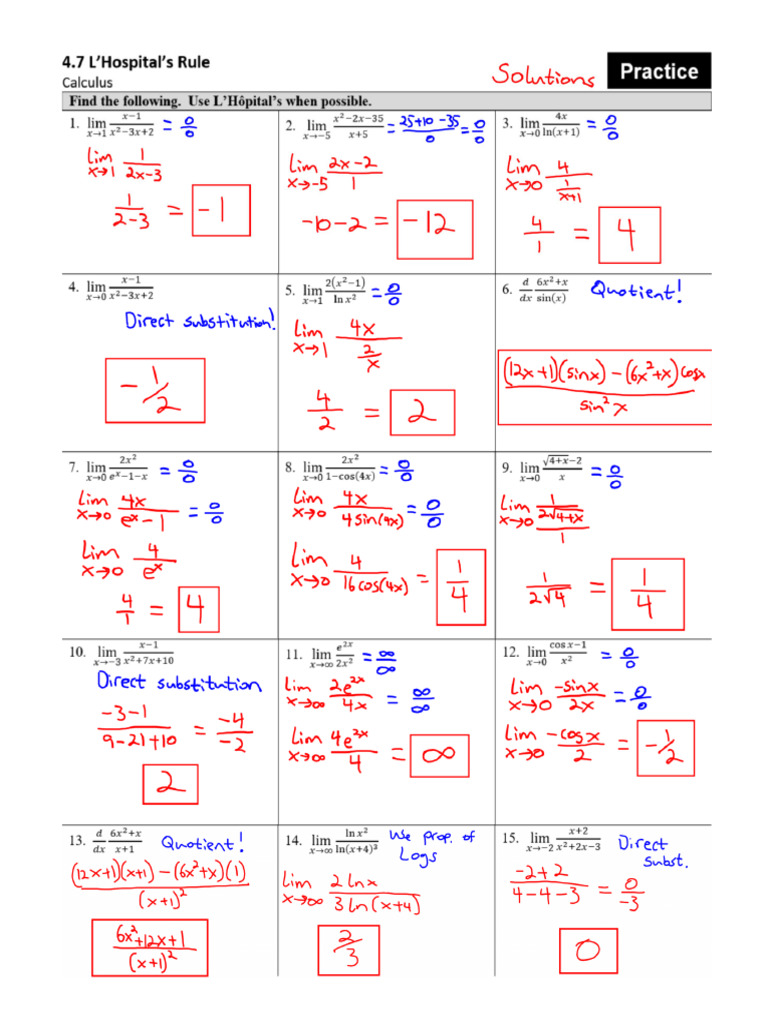 4.7 L'Hospital's Rule
Calculus
Solutions
Practice
Find the following. Use L'Hôpital's when possible.
1. lim x→1 (x−1)/(x²−3x+2) = 0/0
lim x→1 1/(2x−3)
1/(2−3) = −1
2. lim x→−5 (x²−2x−35)/(x+5) = (25+10−35)/0 = 0/0
lim x→−5 (2x−2)/1
−10−2 = −12
3. lim x→0 4x/ln(x+1) = 0/0
lim x→0 4/(1/(x+1))
4/1 = 4
4. lim x→0 (x−1)/(x²−3x+2)
Direct substitution!
−1/2
5. lim x→1 2(x²−1)/ln x² = 0/0
lim x→1 4x/(2/x)
4/2 = 2
6. d/dx (6x²+x)/sin(x)
Quotient!
((12x+1)(sinx)−(6x²+x)cosx)/sin²x
7. lim x→0 2x²/(eˣ−1−x) = 0/0
lim x→0 4x/(eˣ−1) = 0/0
lim x→0 4/eˣ
4/1 = 4
8. lim x→0 2x²/(1−cos(4x)) = 0/0
lim x→0 4x/(4sin(4x)) = 0/0
lim x→0 4/(16cos(4x)) = 1/4
9. lim x→0 (√(4+x)−2)/x = 0/0
lim x→0 (1/(2√(4+x)))/1
1/(2√4) = 1/4
10. lim x→−3 (x−1)/(x²+7x+10)
Direct substitution
(−3−1)/(9−21+10) = −4/−2
2
11. lim x→∞ e²ˣ/2x² = ∞/∞
lim x→∞ 2e²ˣ/4x = ∞/∞
lim x→∞ 4e²ˣ/4 = ∞
12. lim x→0 (cos x−1)/x² = 0/0
lim x→0 −sinx/2x = 0/0
lim x→0 −cosx/2 = −1/2
13. d/dx (6x²+x)/(x+1)
Quotient!
((12x+1)(x+1)−(6x²+x)(1))/(x+1)²
(6x²+12x+1)/(x+1)²
14. lim x→∞ ln x²/ln(x+4)³
Use prop. of
Logs
lim x→∞ 2lnx/(3ln(x+4))
2/3
15. lim x→−2 (x+2)/(x²+2x−3)
Direct
subst.
(−2+2)/(4−4−3) = 0/−3
0